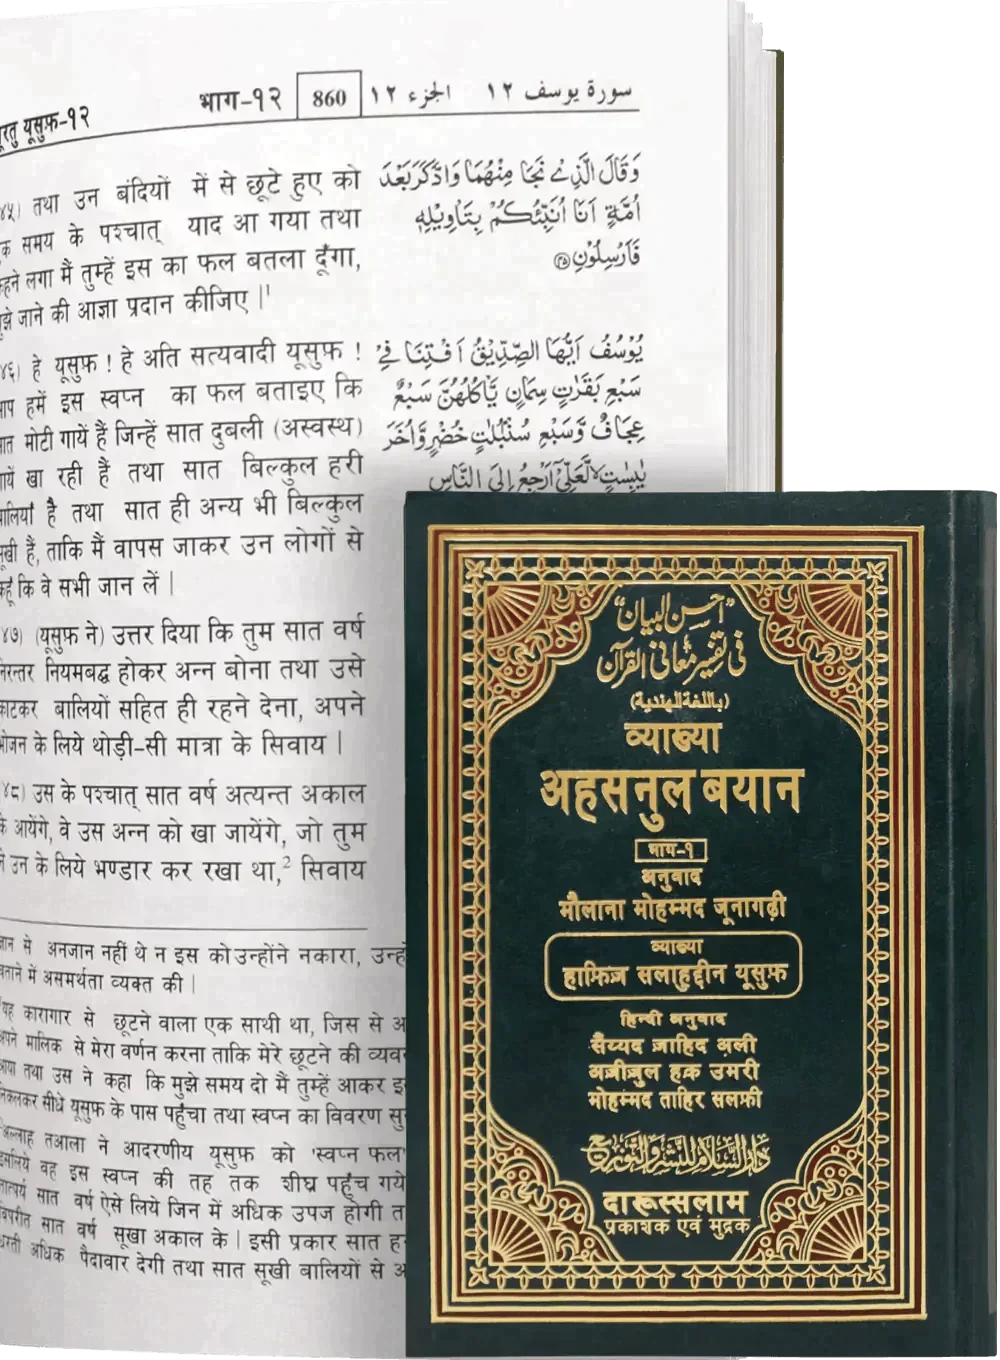 भाग-१२ 860 الجزء ١٢ سورة يوسف ١٢
यूसुफ़-१२
तथा उन बंदियों में से छूटे हुए को
समय के पश्चात् याद आ गया तथा
लगा मैं तुम्हें इस का फल बतला दूंगा,
जाने की आज्ञा प्रदान कीजिए |¹
وَقَالَ الَّذِي نَجَا مِنْهُمَا وَادَّكَرَ بَعْدَ
أُمَّةٍ أَنَا أُنَبِّئُكُمْ بِتَأْوِيلِهِ
فَأَرْسِلُونِ ﴿٤٥﴾
हे यूसुफ़ ! हे अति सत्यवादी यूसुफ़ !
हमें इस स्वप्न का फल बताइए कि
मोटी गायें हैं जिन्हें सात दुबली (अस्वस्थ)
खा रही हैं तथा सात बिल्कुल हरी
है तथा सात ही अन्य भी बिल्कुल
हैं, ताकि मैं वापस जाकर उन लोगों से
कि वे सभी जान लें |
يُوسُفُ أَيُّهَا الصِّدِّيقُ أَفْتِنَا فِي
سَبْعِ بَقَرَاتٍ سِمَانٍ يَأْكُلُهُنَّ سَبْعٌ
عِجَافٌ وَسَبْعِ سُنْبُلَاتٍ خُضْرٍ وَأُخَرَ
يَابِسَاتٍ لَعَلِّي أَرْجِعُ إِلَى النَّاسِ
(यूसुफ़ ने) उत्तर दिया कि तुम सात वर्ष
नियमबद्ध होकर अन्न बोना तथा उसे
बालियों सहित ही रहने देना, अपने
के लिये थोड़ी-सी मात्रा के सिवाय |
उस के पश्चात् सात वर्ष अत्यन्त अकाल
आयेंगे, वे उस अन्न को खा जायेंगे, जो तुम
उन के लिये भण्डार कर रखा था,² सिवाय
से अनजान नहीं थे न इस को उन्होंने नकारा,
में असमर्थता व्यक्त की |
कारागार से छूटने वाला एक साथी था, जिस से
मालिक से मेरा वर्णन करना ताकि मेरे छूटने की
तथा उस ने कहा कि मुझे समय दो मैं तुम्हें आकर
सीधे यूसुफ़ के पास पहुँचा तथा स्वप्न का विवरण
तआला ने आदरणीय यूसुफ़ को 'स्वप्न फल'
वह इस स्वप्न की तह तक शीघ्र पहुँच गये
सात वर्ष ऐसे लिये जिन में अधिक उपज होगी
सात वर्ष सूखा अकाल के | इसी प्रकार सात
अधिक पैदावार देगी तथा सात सूखी बालियों से
"أحسن البيان"
في تفسير معاني القرآن
(باللغة الهندية)
व्याख्या
अहसनुल बयान
भाग-१
अनुवाद
मौलाना मोहम्मद जूनागढ़ी
व्याख्या
हाफ़िज़ सलाहुद्दीन यूसुफ़
हिन्दी अनुवाद
सैय्यद ज़ाहिद अली
अज़ीज़ुल हक़ उमरी
मोहम्मद ताहिर सलफ़ी
دار السلام للنشر والتوزيع
दारुस्सलाम
प्रकाशक एवं मुद्रक